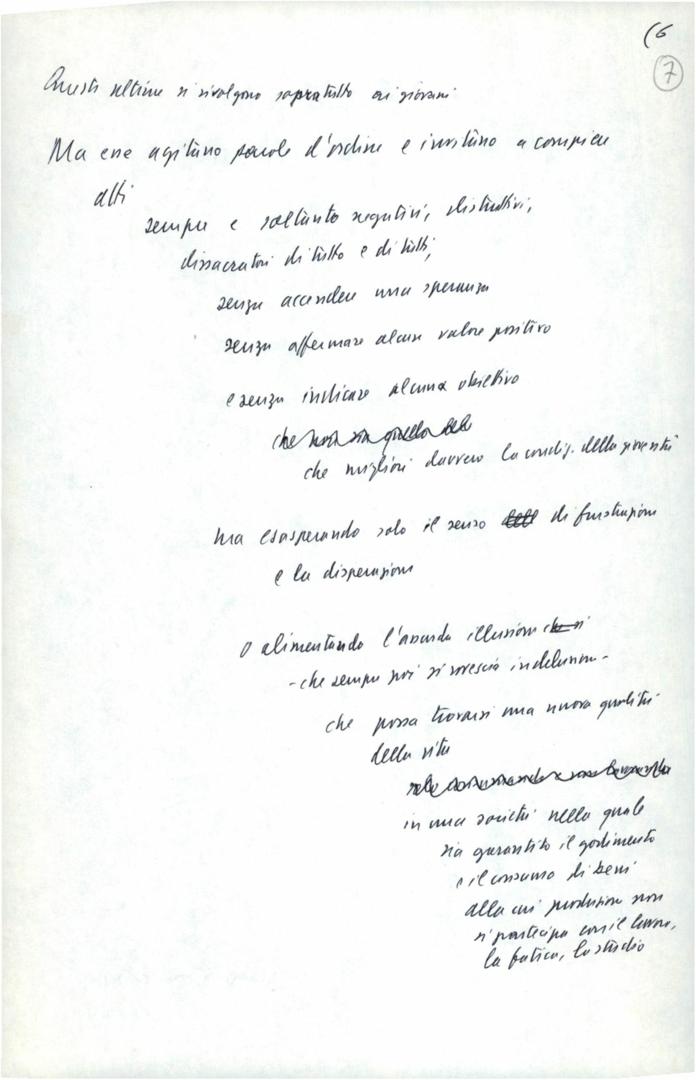 (6
7
Queste ultime si rivolgono sopratutto ai giovani
Ma esse agitano parole d'ordine e invitano a compiere
atti
sempre e soltanto negativi, distruttivi,
dissacratori di tutto e di tutti,
senza accendere una speranza
senza affermare alcun valore positivo
e senza indicare alcun obiettivo
che non sia quello del
che migliori davvero la condiz. della gioventù
ma esasperando solo il senso di frustrazione
e la disperazione
o alimentando l'assurda illusione che si
- che sempre poi si rovescia in delusione -
che possa trovarsi una nuova qualità
della vita
in una società nella quale
sia garantito il godimento
e il consumo di beni
alla cui produzione non
si partecipa con il lavoro,
la fatica, lo studio